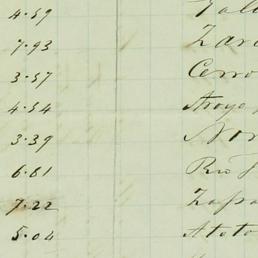 4.59
7.93
3.57 Cerro
4.54 Arroyo
3.39 Nor
6.81 Rio
7.22 Zapa
5.04 Atoto